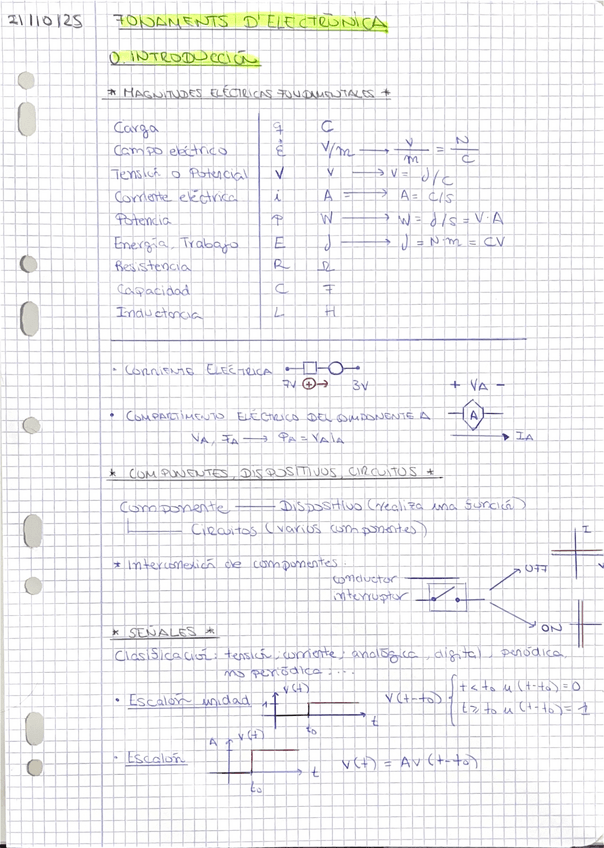 21/10/25
FONAMENTS D'ELECTRÒNICA
0. INTRODUCCIÓN
* MAGNITUDES ELÉCTRICAS FUNDAMENTALES *
Carga q C
Campo eléctrico E V/m → V/m = N/C
Tensión o Potencial V V → V = J/C
Corriente eléctrica i A → A = C/S
Potencia P W → W = J/S = V·A
Energía, Trabajo E J → J = N·m = CV
Resistencia R Ω
Capacidad C F
Inductancia L H
• CORRIENTE ELÉCTRICA
7V + → 3V
+ VA -
• COMPARTIMENTO ELÉCTRICO DEL COMPONENTE A
A
VA, IA → PA = VA IA
IA
* COMPONENTES, DISPOSITIVOS, CIRCUITOS *
Componente — Dispositivo (realiza una función)
Circuitos (varios componentes)
I
* Interconexión de componentes.
OFF V
conductor
interruptor
ON
* SEÑALES *
Clasificación: tensión, corriente, analógica, digital, periódica,
no periódica ...
• Escalón unidad 1 V(t) t0 t
V(t-t0) { t < t0 u(t-t0) = 0
t ≥ t0 u(t-t0) = 1
• Escalón A V(t) t0 t
V(t) = AV(t-t0)